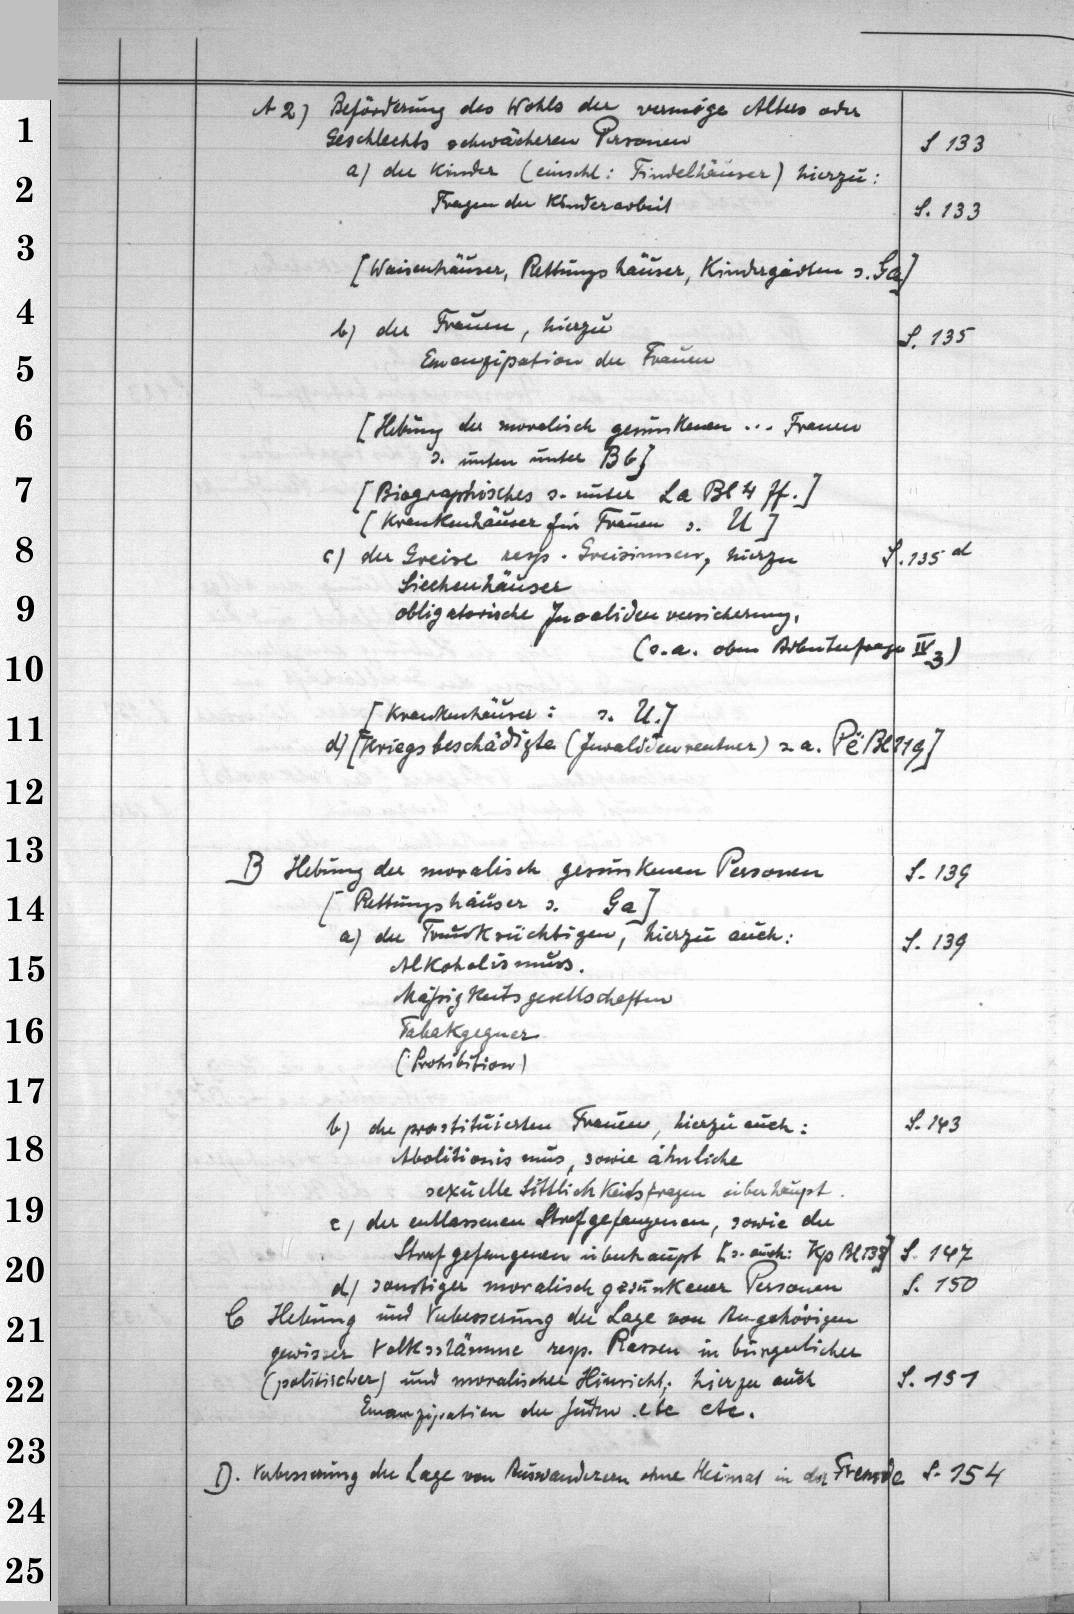 A 2) Beförderung des Wohls der vermöge Alters oder
Geschlechts schwächeren Personen S 133
a) der Kinder (einschl: Findelhäuser) hierzu:
Fragen der Kinderarbeit S. 133
[Waisenhäuser, Rettungshäuser, Kindergärten s. Ga]
b) der Frauen, hierzu S. 135
Emanzipation der Frauen
[Hebung der moralisch gesunkenen ... Frauen
s. unten unter B b]
[Biographisches s. unter La Bl 4 ff.]
[Krankenhäuser für Frauen s. U]
c) der Greise resp. Greisinnen, hierzu S. 135 d
Siechenhäuser
obligatorische Invalidenversicherung.
(s.a. oben Arbeiterfrage IV 3)
[Krankenhäuser: s. U.]
d) [Kriegsbeschädigte (Invalidenrentner) s a. Pë Bl 119]
B Hebung der moralisch gesunkenen Personen S. 139
[Rettungshäuser s. Ga]
a) der Trunksüchtigen, hierzu auch: S. 139
Alkoholismus.
Mäßigkeitsgesellschaften
Tabakgegner
(Prohibition)
b) der prostituierten Frauen, hierzu auch: S. 143
Abolitionismus, sowie ähnliche
sexuelle Sittlichkeitsfragen überhaupt.
c) der entlassenen Strafgefangenen, sowie der
Strafgefangenen überhaupt [s. auch: Kp Bl 138] S. 147
d) sonstiger moralisch gesunkener Personen S. 150
C Hebung und Verbesserung der Lage von Angehörigen
gewisser Volksstämme resp. Rassen in bürgerlicher
(politischer) und moralischer Hinsicht; hierzu auch S. 151
Emanzipation der Juden etc etc.
D. Verbesserung der Lage von Auswanderern ohne Heimat in der Fremde S. 154
1
2
3
4
5
6
7
8
9
10
11
12
13
14
15
16
17
18
19
20
21
22
23
24
25